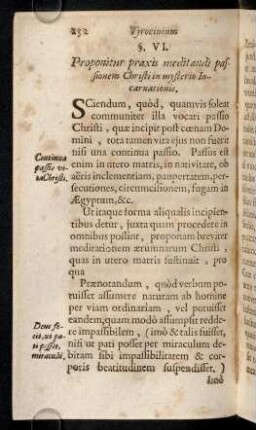 232 Tyrocinium
§. VI.
Proponitur praxis meditandi pas-
sionem Christi in mysterio In-
carnationis.
SCiendum, quòd, quamvis soleat
communiter illa vocari passio
Christi, quæ incipit post cœnam Do-
mini, tota tamen vita ejus non fuerit
nisi una continua passio. Passus est
Continua
passio vi-
ta Christi.
enim in utero matris, in nativitate, ob
aëris inclementiam, paupertatem, per-
secutiones, circumcisionem, fugam in
Ægyptum, &c.
Ut itaque forma aliqualis incipien-
tibus detur, juxta quam procedere in
omnibus possint, proponam breviter
meditationem ærumnarum Christi,
quas in utero matris sustinuit, pro
qua
Prænotandum, quòd verbum po-
tuisset assumere naturam ab homine
per viam ordinariam, vel potuisset
eandem, quam modò assumpsit redde-
re impassibilem, (imò & talis fuisset,
Deus fe-
cit, ut pa-
ti possit,
miraculū,
nisi ut pati posset per miraculum de-
bitam sibi impassibilitatem & cor-
poris beatitudinem suspendisset,)
imò